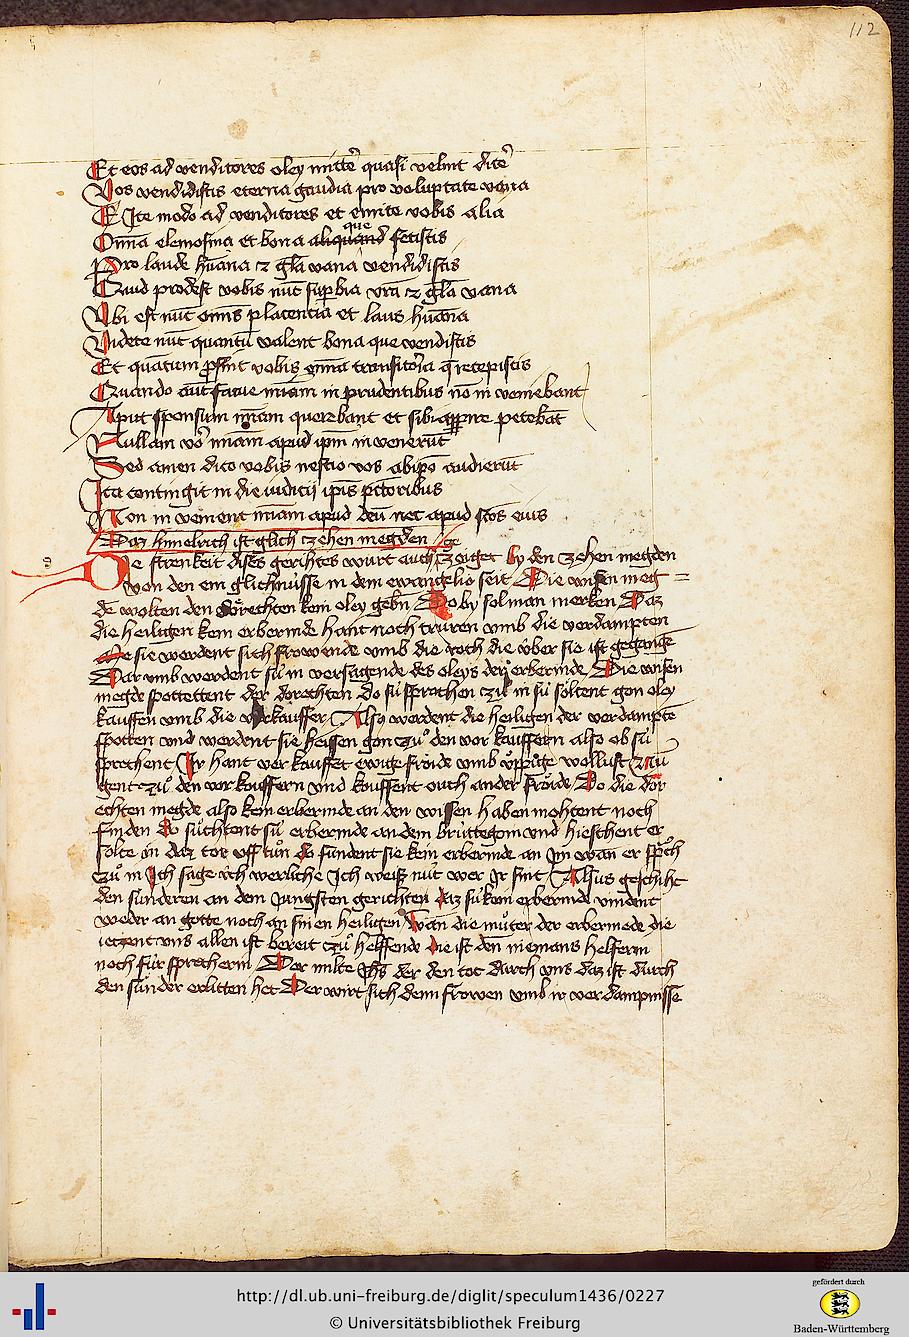 112
Et eos ad venditores oley mittē quasi vellnt dicē
Vos vendidistis eterna gaudia pro voluptate vana
Ite modo ad venditores et emite vobis alia
Omīa elemosina et bona que fecistis
Pro laude hūana ⁊ glā vana vendidistis
Quid prodest vobis nūc supbia vrā ⁊ glā vana
Vbi est nūc omīs placentia et laus hūana
Videte nūc quantū valent bona que vendistis
Et quātum psint vobis omīa transitoria q recepistis
Quando aūt fatue mīam in prudentibus nō in veniebant
Aput sponsum mīam querebant et sibi appire petebāt
Nullam vō mīam apud ipm in venerūt
Sed amen dico vobis nescio vos ab ipo audierūt
Ita contingit in die iudicij ipis pctoribus
Non in venient mīam apud deū nec apud scōs eius
Daz himelrich ist glich zehen megden
Die strenkeit dises gerihtes wurt auch zöiget by den zehen megden
von den ein glichnüsse in dem ewangelio seit Die wisen meg=
de wolten den dorechten kein oley gebn Do by sol man merken Daz
die heiligen kein erbermde hant noch truren vmb die verdampten
sie werdent sich frowende vmb die roch die über sie ist gegange
Dar vmb werdent sü in versagende des oleys der erbermde Die wisen
megde spottettent der dorechten do sü sprachen zuͦ in sü söltent gon oley
kauffen vmb die verkauffer Also werdent die heiligen der verdampte
spotten vnd werdent sie heissen gon zuͦ den verkauffern also ob sü
sprechent Ir hant verkauffet ewige fröide vmb üppige wollust Nū
gent zuͦ den verkouffern vnd kouffent ouch ander fröide Do die dor
echten megde also kein erbermde an den wisen haben mohtent noch
finden Do süchtent sü erbermde an dem brüttegom vnd hieschent er
solte in daz tor vff tuͦn do fundent sie kein erbermde an Im wan er sprͦch
zuͦ in Ich sage üch werliche Ich weiß nüt wer Ir sint Alsus geschiht
den sunderen an dem Jungsten gerichten daz sü kein erbermde vindent
weder an gotte noch an sinen heiligen Wan die muͦter der erbermede die
ietzent vns allen ist bereit zuͦ helffende die ist den niemans helferin
noch für sprecherin Der milte Jhs der den tot durch vns daz ist durch
den sünder erlitten het Der wirt sich denn frowen vmb ir verdampnisse
http://dl.ub.uni-freiburg.de/diglit/speculum1436/0227
© Universitätsbibliothek Freiburg
gefördert durch
Baden-Württemberg